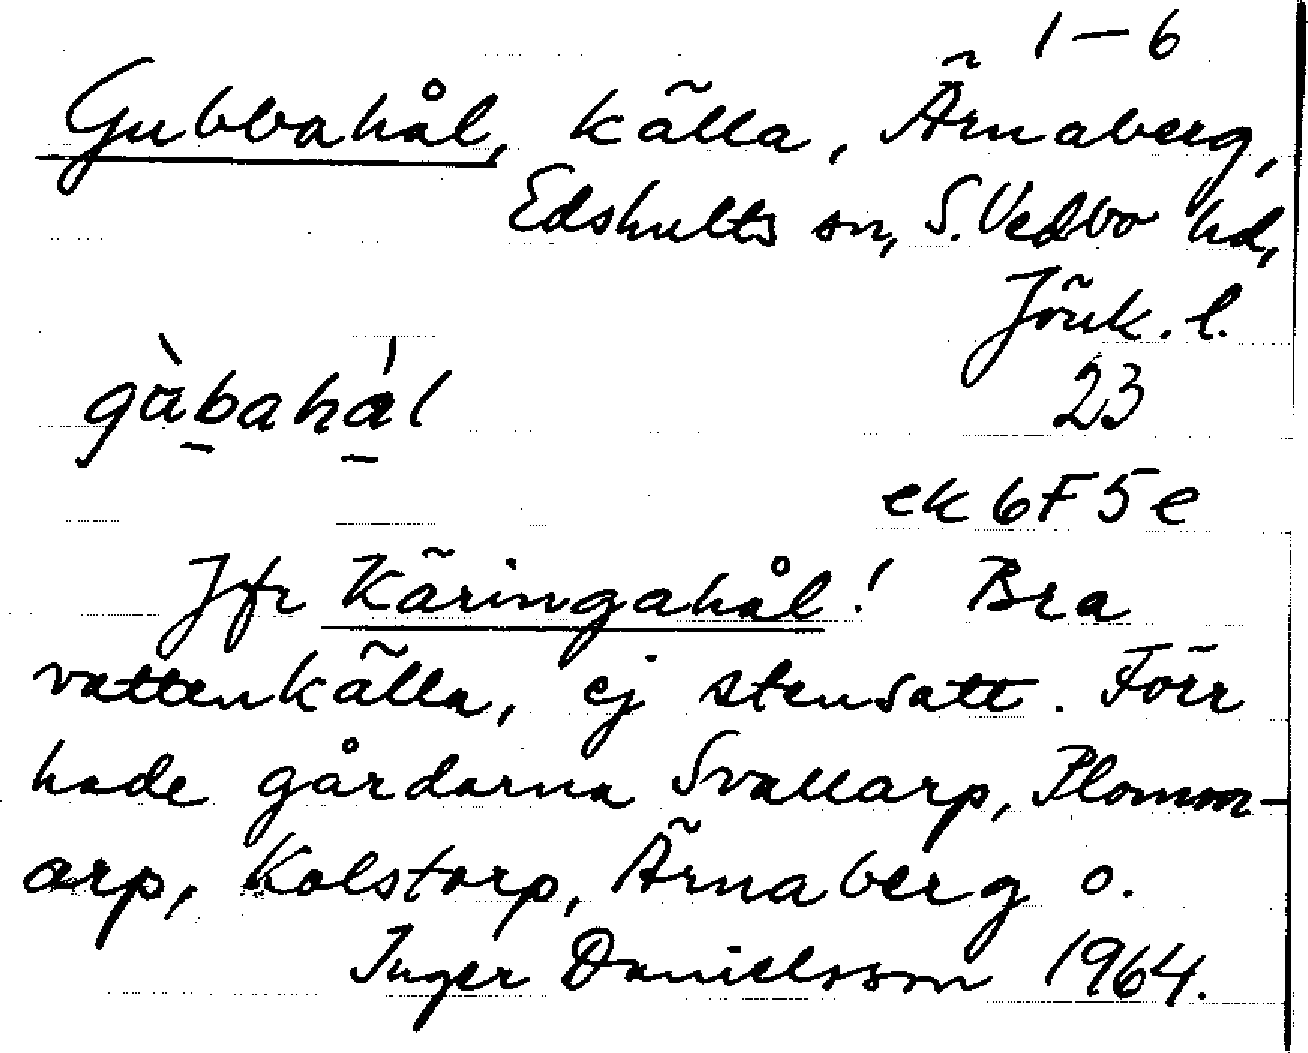 1–6
Gubbahål, källa, Ärnaberg,
Edshults sn, S. Vedbo hd,
Jönk. l.
gàbahál
23
ek 6F5e
Jfr Käringahål! Bra
vattenkälla, ej stensatt. Förr
hade gårdarna Svallarp, Plomm-
arp, Kolstorp, Ärnaberg o.
Inger Danielsson 1964.